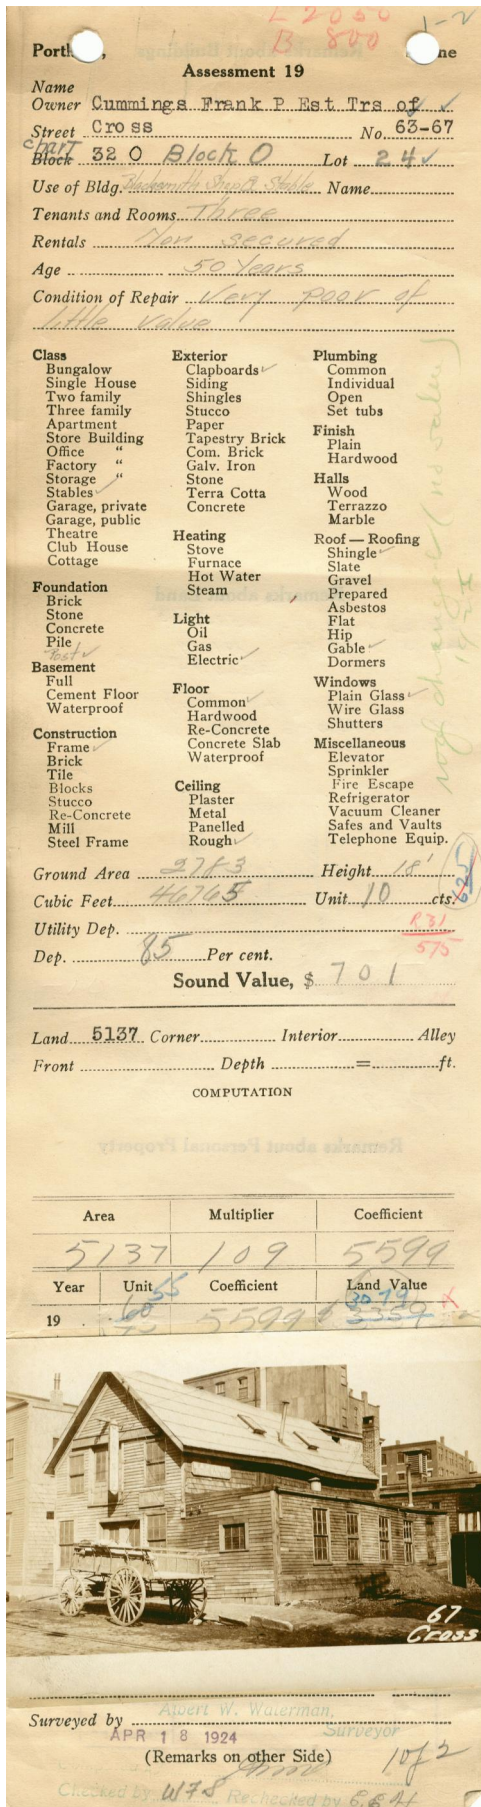 L 2050 1-2
Portl , B 800 ne
Assessment 19
Name
Owner Cummings Frank P Est Trs of
Street Cross No. 63-67
Chart
Block 32 O Block O Lot 24
Use of Bldg. Blacksmith Shop & Stable Name
Tenants and Rooms Three
Rentals Non secured
Age 50 Years
Condition of Repair Very poor of
little value
Class
Bungalow
Single House
Two family
Three family
Apartment
Store Building
Office "
Factory "
Storage "
Stables ✓
Garage, private
Garage, public
Theatre
Club House
Cottage
Foundation
Brick
Stone
Concrete
Pile
Post ✓
Basement
Full
Cement Floor
Waterproof
Construction
Frame ✓
Brick
Tile
Blocks
Stucco
Re-Concrete
Mill
Steel Frame
Exterior
Clapboards ✓
Siding
Shingles
Stucco
Paper
Tapestry Brick
Com. Brick
Galv. Iron
Stone
Terra Cotta
Concrete
Heating
Stove
Furnace
Hot Water
Steam
Light
Oil
Gas
Electric ✓
Floor
Common ✓
Hardwood
Re-Concrete
Concrete Slab
Waterproof
Ceiling
Plaster
Metal
Panelled
Rough ✓
Plumbing
Common
Individual
Open
Set tubs
Finish
Plain
Hardwood
Halls
Wood
Terrazzo
Marble
Roof — Roofing
Shingle ✓
Slate
Gravel
Prepared
Asbestos
Flat
Hip
Gable ✓
Dormers
Windows
Plain Glass ✓
Wire Glass
Shutters
Miscellaneous
Elevator
Sprinkler
Fire Escape
Refrigerator
Vacuum Cleaner
Safes and Vaults
Telephone Equip.
roof changed (no value)
Ground Area 2783 Height 18'
Cubic Feet 46765 Unit 10 cts. 625
Utility Dep. R31
575
Dep. 85 Per cent.
Sound Value, $ 701
Land 5137 Corner Interior Alley
Front Depth = ft.
COMPUTATION
Area Multiplier Coefficient
5137 109 5599
Year Unit Coefficient Land Value
55 3079 X
19 60 5599 3359
67
Cross
Surveyed by Albert W. Waterman,
Surveyor
APR 18 1924
(Remarks on other Side) 1 of 2
Checked by WFS Rechecked by